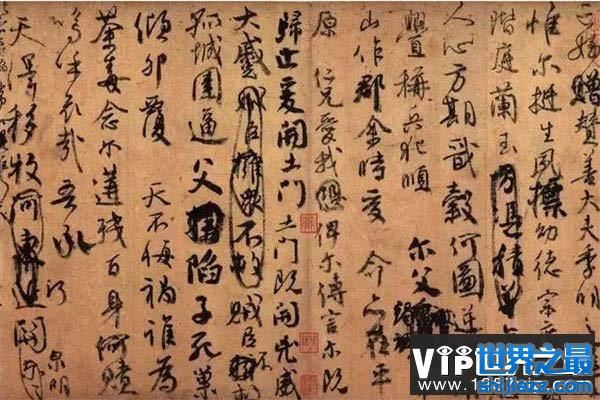 姪贈贊善大夫季明之
惟尔挺生夙標幼德宗
階庭蘭玉
人心方期戩穀何圖逆
稱兵犯順 尔父
山作郡余時受 命亦在平
原仁兄愛我俾尔傳言尔既
歸止爰開土門土門既開凶威
大蹙賊臣擁衆不救賊臣不
孤城圍逼父陷子死巢
傾卵覆 天不悔禍誰為
荼毒念尔遘殘百身何贖
嗚呼哀哉吾承
天澤移牧河東近
泉明
VIP 世界之最
shijiezz.com